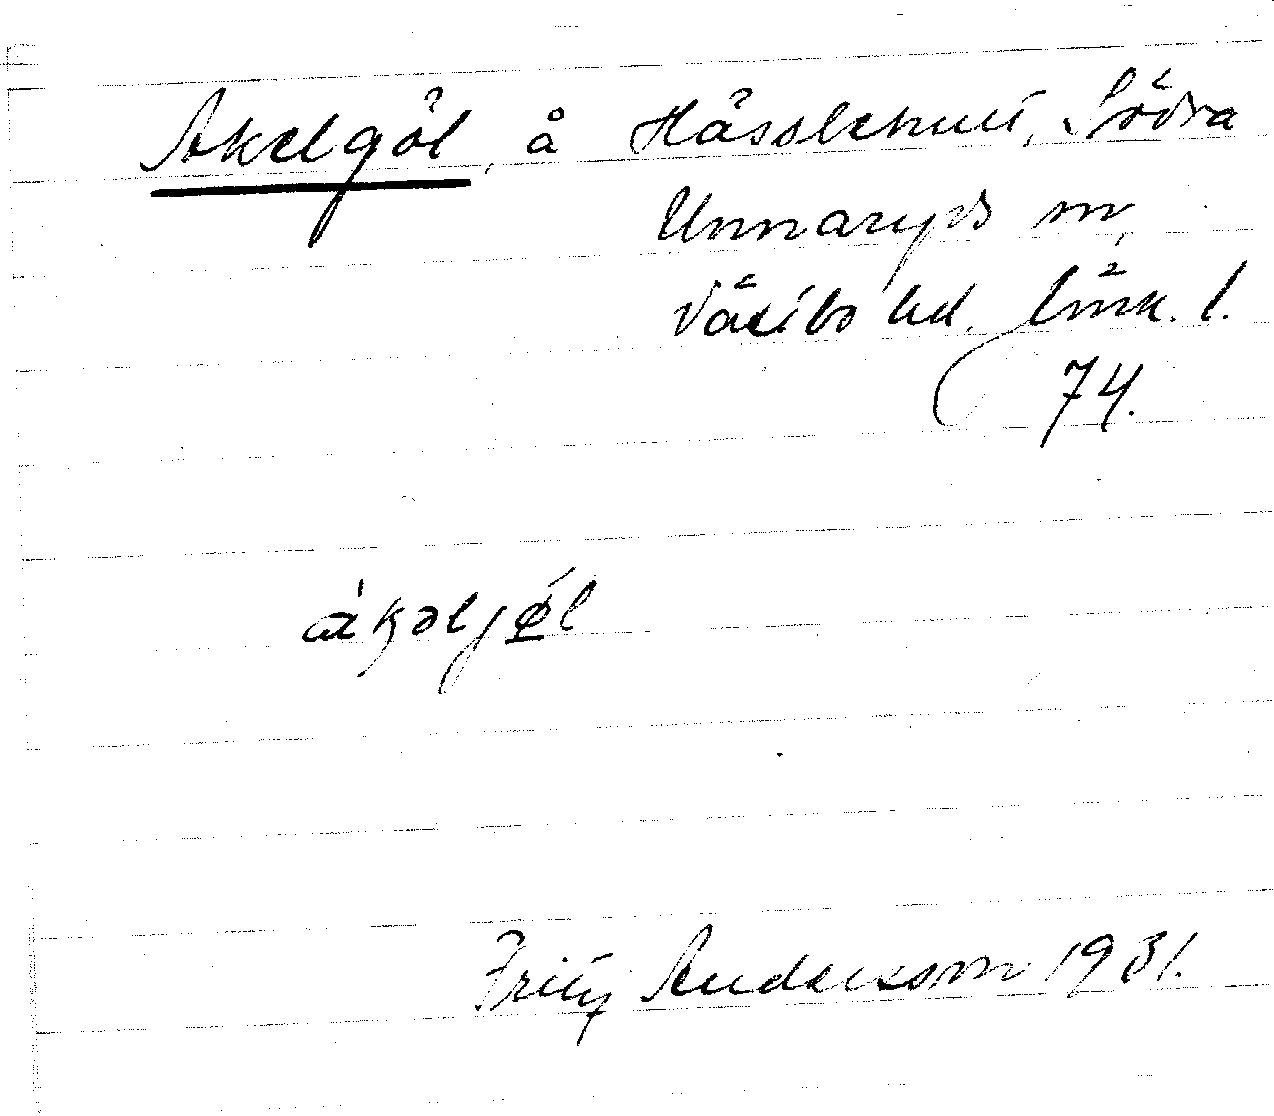 Akelgöl, å Hässlehult, Södra
Unnaryds sn,
Västbo hd. Jönk. l.
74.
àkəljǿl
Fritz Andersson 1931.